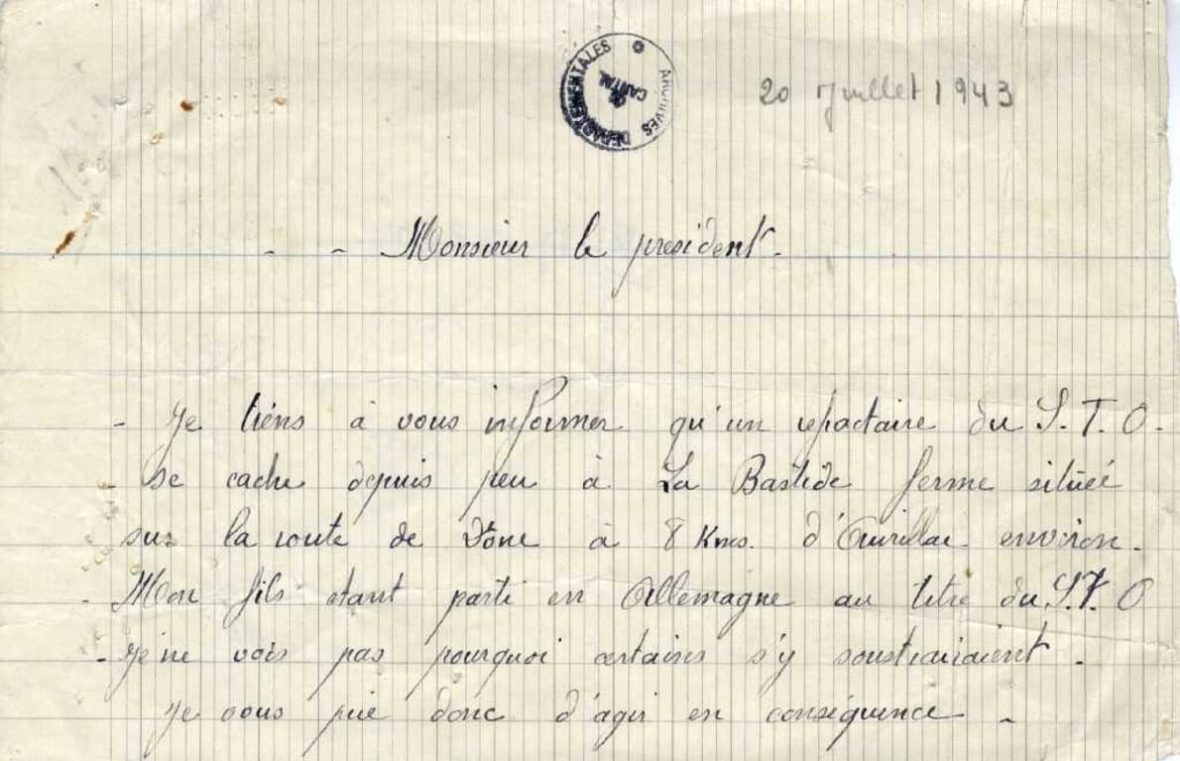 ARCHIVES DEPARTEMENTALES
DU CANTAL
20 Juillet 1943
- - Monsieur le president -
- Je tiens à vous informer qu'un refractaire du S.T.O.
- se cache depuis peu à La Bastide ferme située
sur la route de à 8 Kms. d'Aurillac environ.
- Mon fils étant parti en Allemagne au titre du S.T.O
- je ne vois pas pourquoi certaines s'y soustrairaient.
Je vous prie donc d'agir en conséquence -